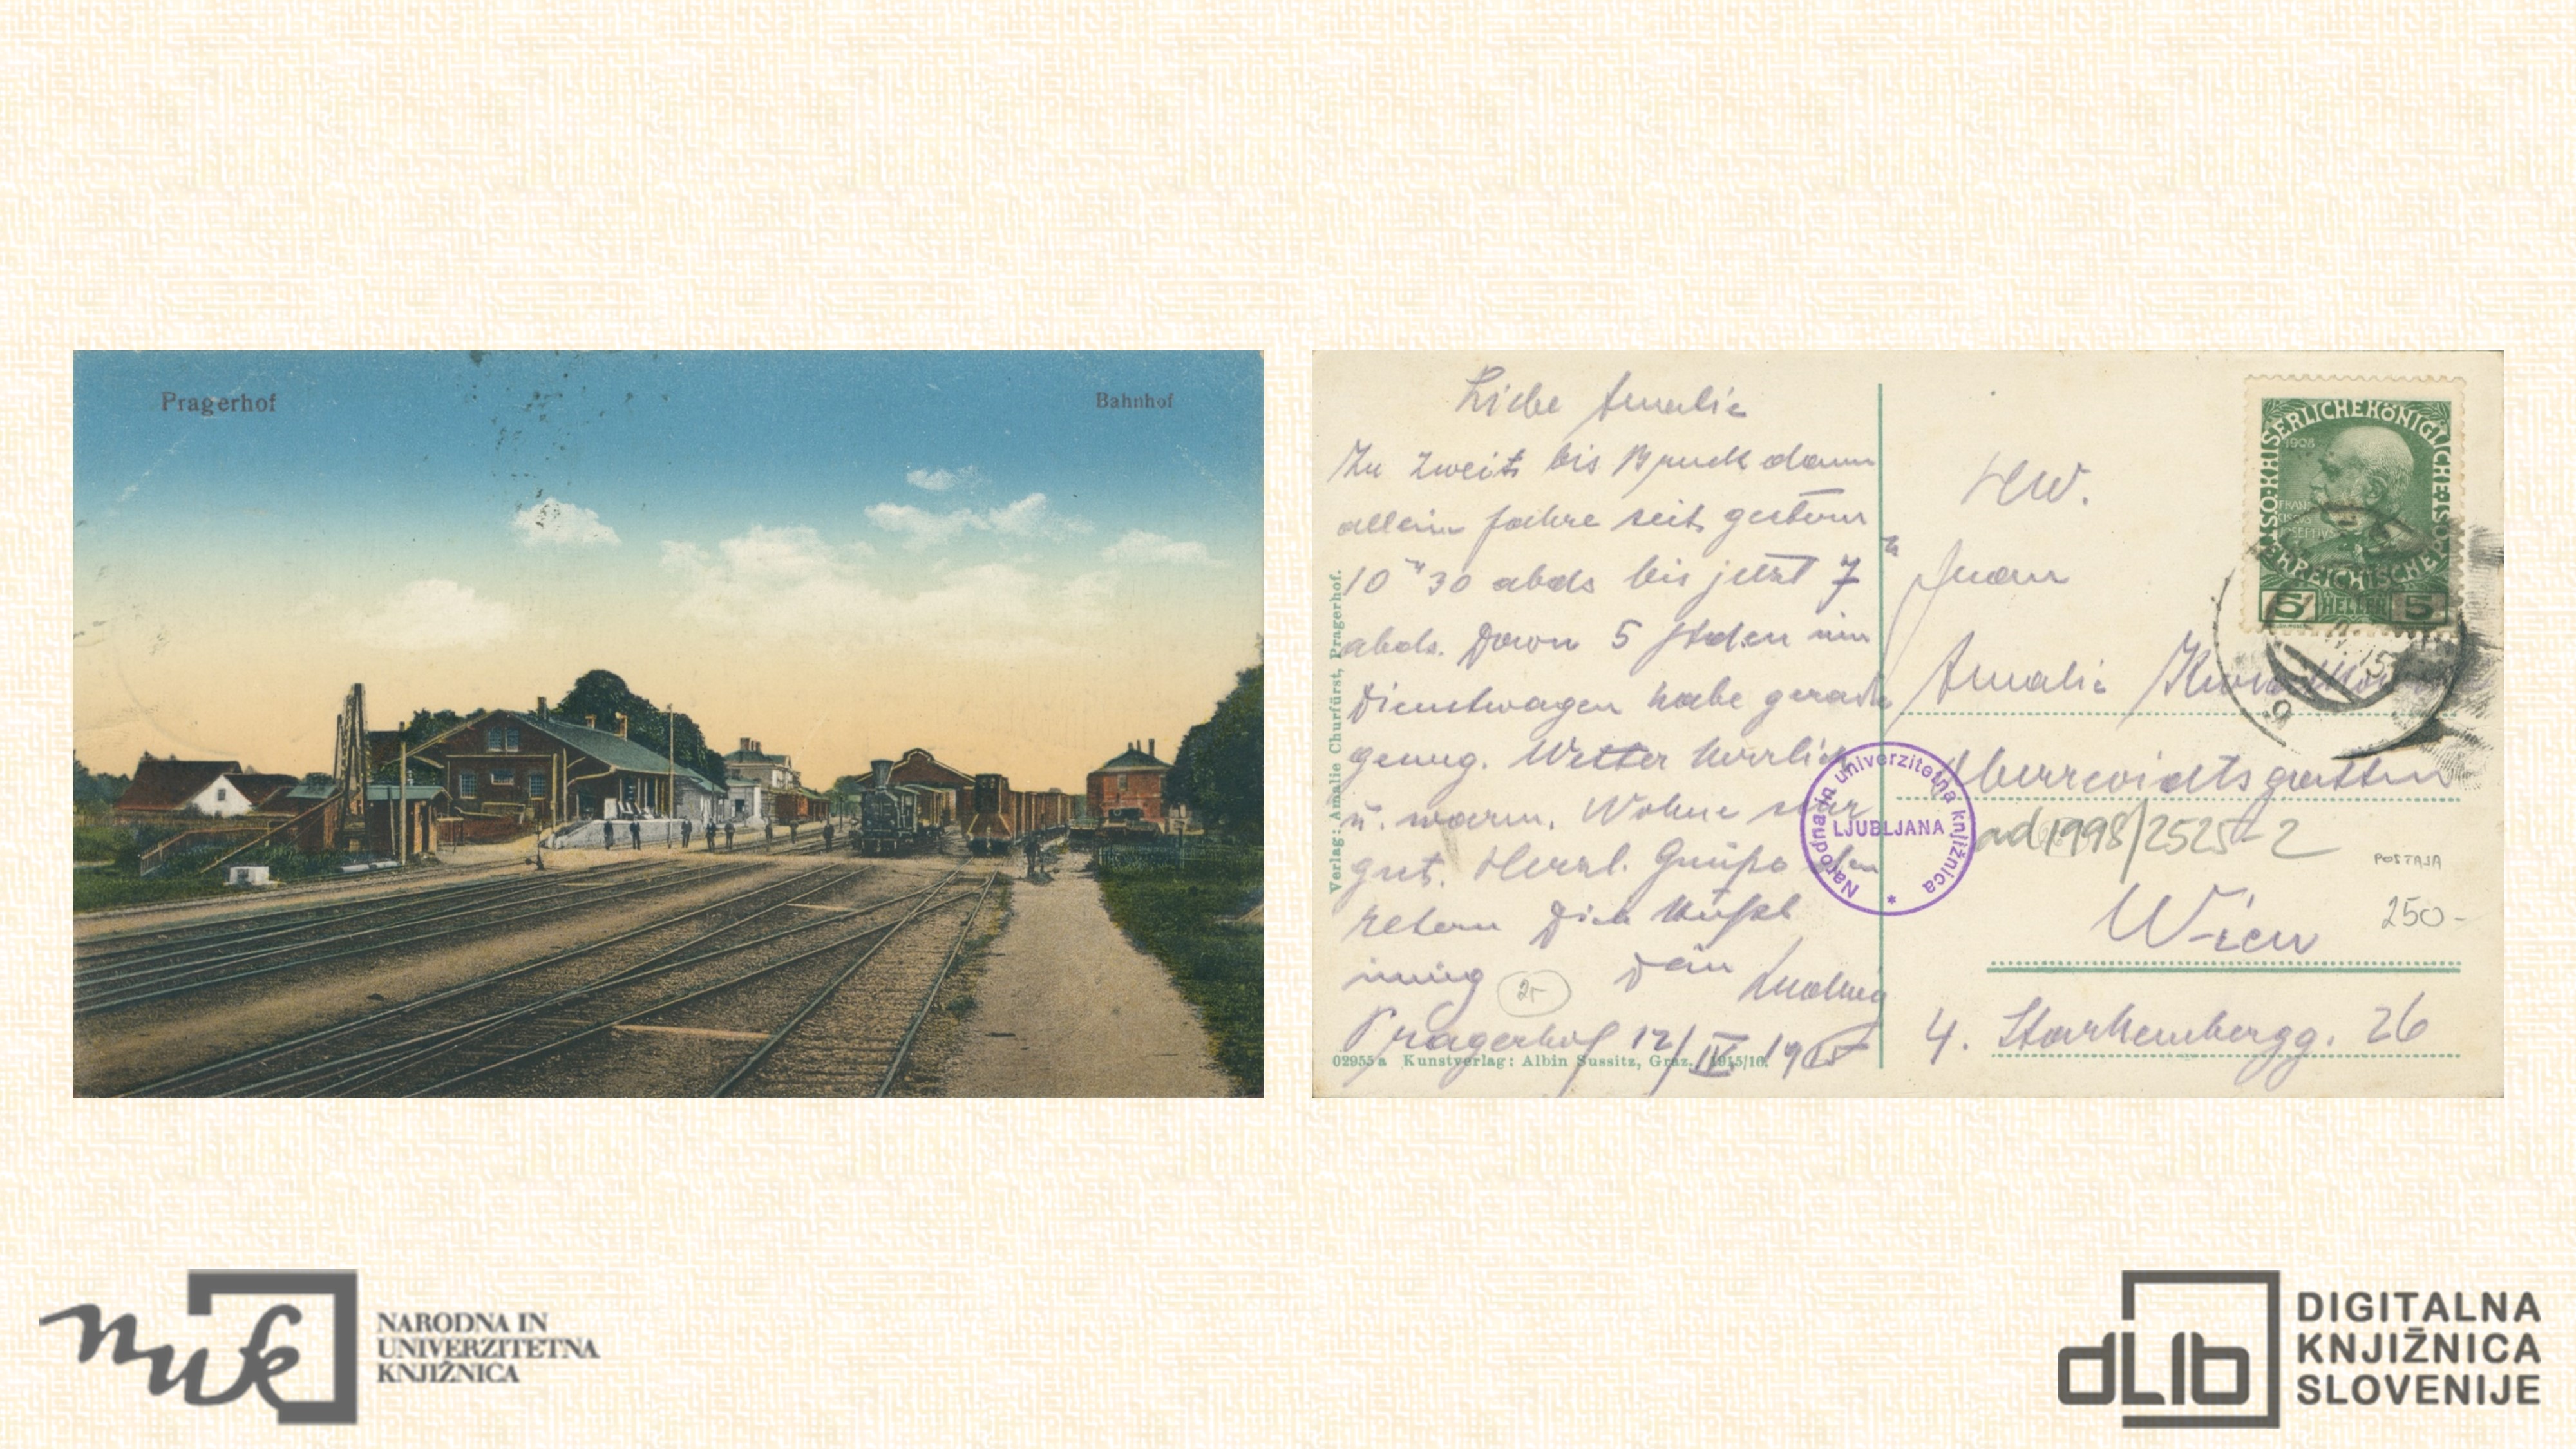 Pragerhof
Bahnhof
Liebe Amalie
Zu zweit bis Bruck dann
allein fahre seit gestern
10 h 30 abds bis jetzt 7 h
abds. Davon 5 Stden im
Dienstwagen habe gerade
genug. Wetter herrlich
u. warm. Wohne sehr
gut. Herzl. Grüße den
Dich küßt
innig Dein Ludwig
Pragerhof 12/IV 1915
Verlag: Amalie Churfürst, Pragerhof.
02955a Kunstverlag: Albin Sussitz, Graz. 1915/16.
2-
KAISERLICHEKÖNIGLICHE
ÖSTERREICHISCHE
1908
FRAN
CISCVS
IOSEFIVS
5 HELLER 5
Frau
Amalie
ad 1998/2525-2
POSTAJA
250-
Wien
4. Starhembergg. 26
Narodna in univerzitetna knjižnica
LJUBLJANA
*
nuk
NARODNA IN
UNIVERZITETNA
KNJIŽNICA
dLib
DIGITALNA
KNJIŽNICA
SLOVENIJE